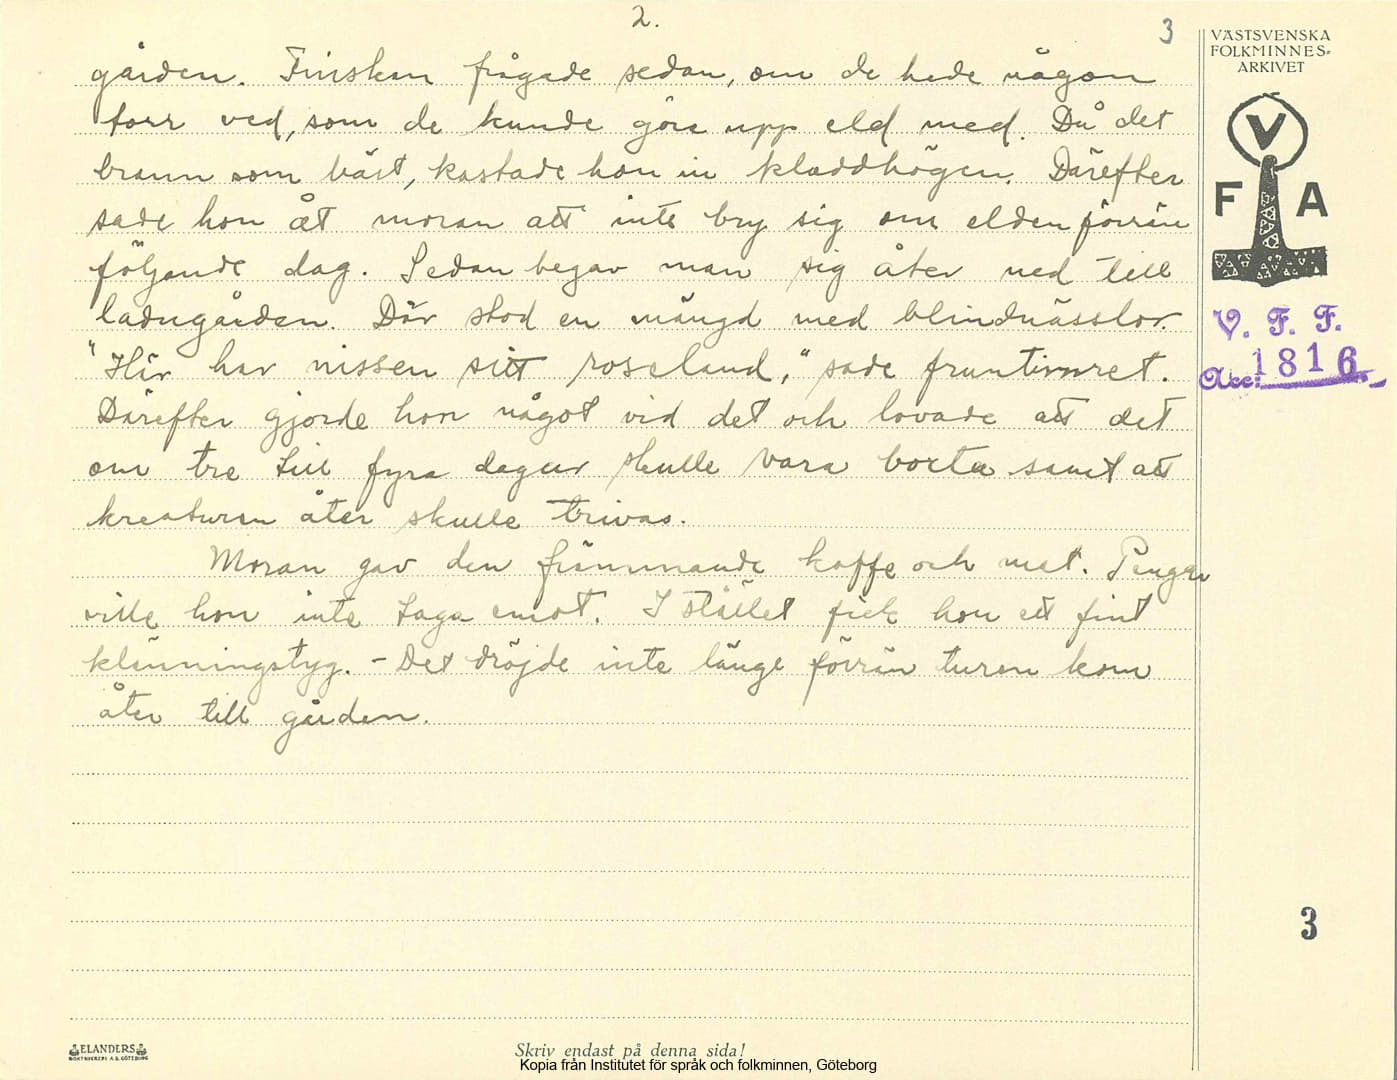 2.
3
gården. Finskan frågade sedan, om de hade någon
torr ved, som de kunde göra upp eld med. Då det
brann som bäst, kastade hon in kladdhögen. Därefter
sade hon åt moran att inte bry sig om elden förrän
följande dag. Sedan begav man sig åter ned till
ladugården. Där stod en mängd med blindnässlor.
"Här har nissen sitt roseland," sade fruntimret.
Därefter gjorde hon något vid det och lovade att det
om tre till fyra dagar skulle vara borta samt att
kreaturen åter skulle trivas.
Moran gav den främmande kaffe och mat. Pengar
ville hon inte taga emot. I stället fick hon ett fint
klänningstyg. - Det dröjde inte länge förrän turen kom
åter till gården.
VÄSTSVENSKA
FOLKMINNES-
ARKIVET
V
F A
V. F. F.
Acc: 1816.
3
ELANDERS
BOKTRYCKERI A.B. GÖTEBORG
Skriv endast på denna sida!
Kopia från Institutet för språk och folkminnen, Göteborg